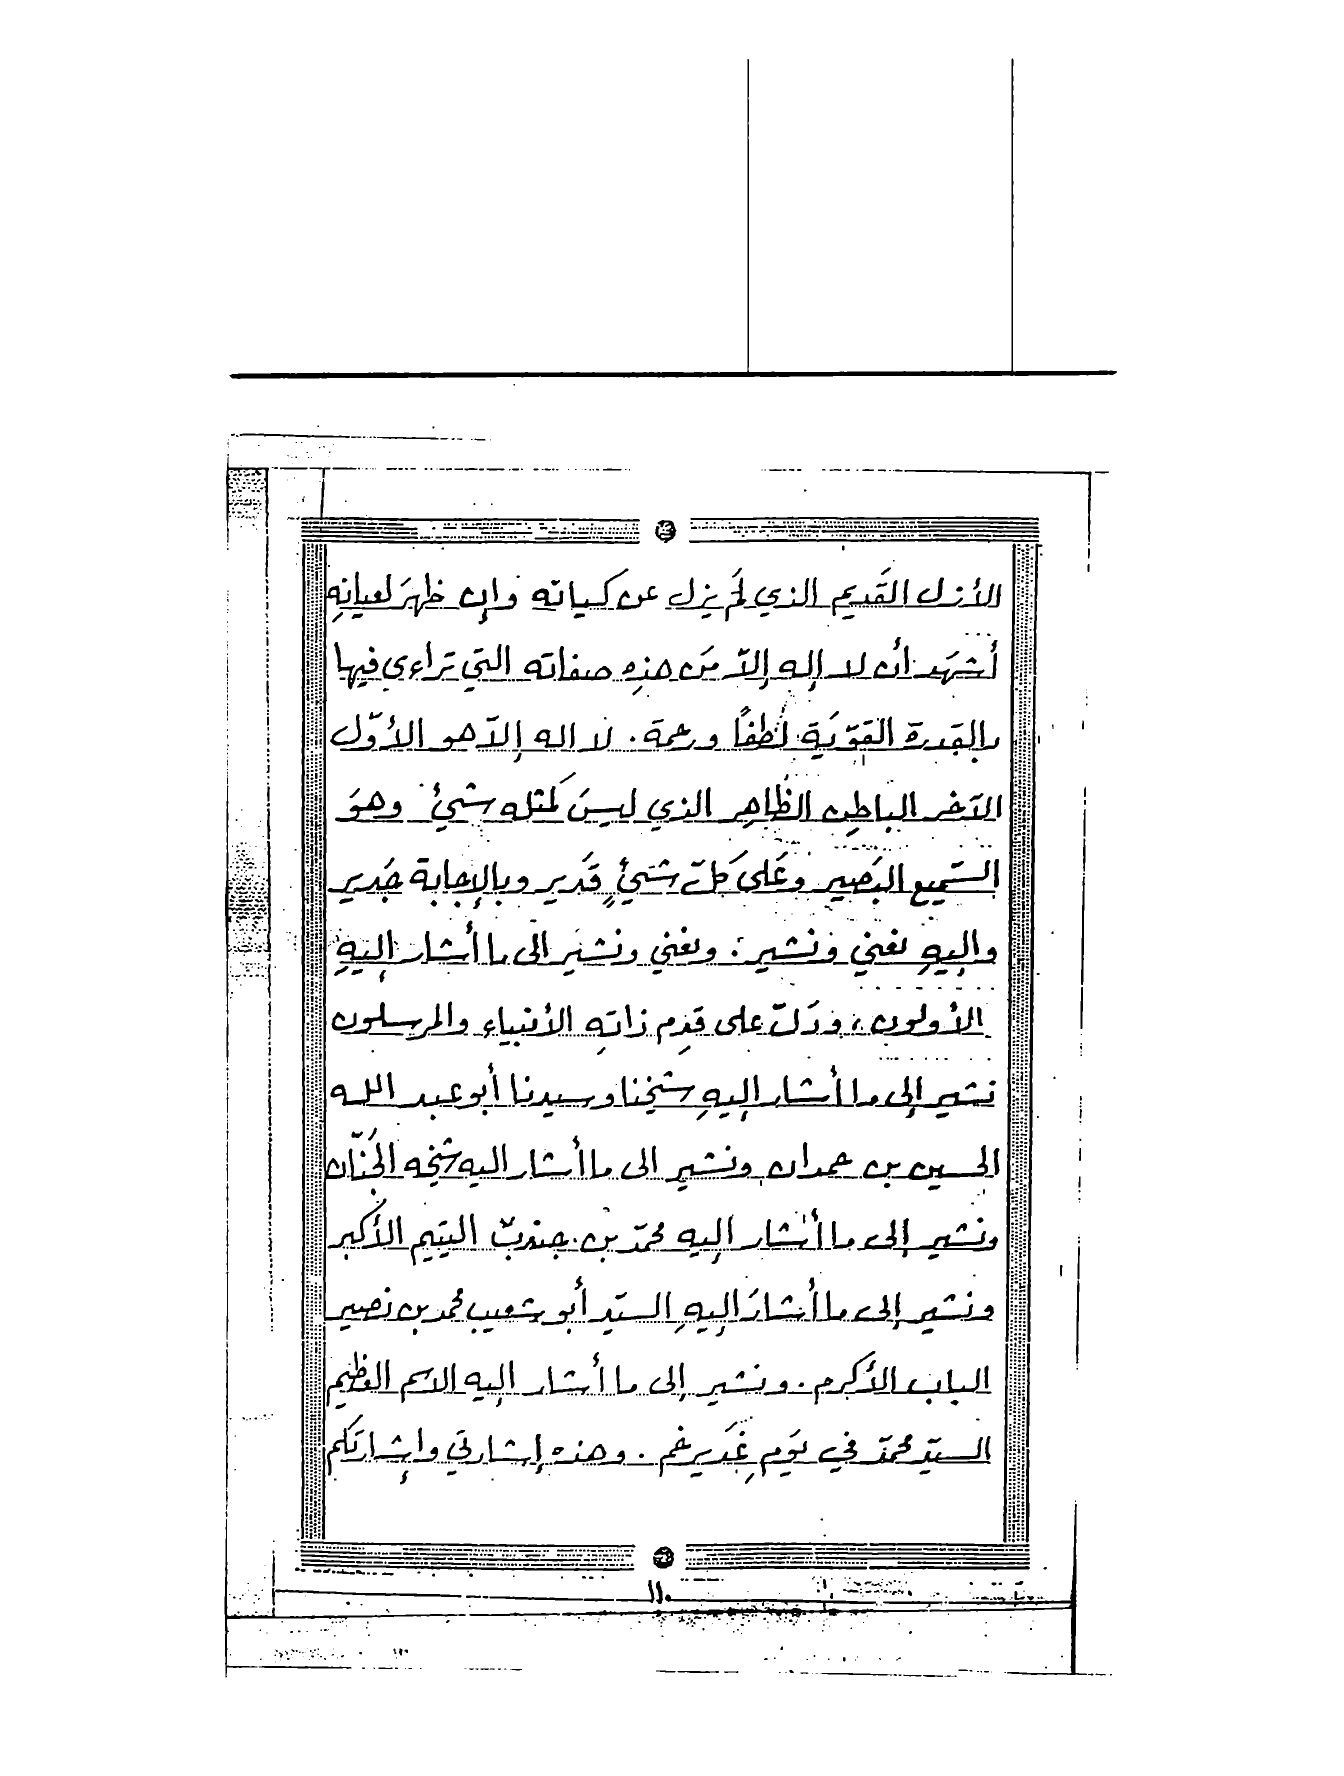 الأزل القَديم الذي لَم يزل عن كيانه وإن ظهرَ لعيانهِ
أشهَد أن لا إله إلاّ مَن هذه صفاته التي تراءى فيها
بالقدرة القوّيَة لُطفًا ورحمة. لا اله إلاّ هو الأوّل
الآخر الباطِن الظاهِر الذي ليسَ كمثله شيئ وهوَ
السَميع البَصير وعَلى كلّ شَيئٍ قَدير وبالإجابة جَدير
واليهِ نعني ونشير: ونعني ونشير الى ما أشار إليهِ
الأولون، ودَلّ على قدِم ذاتهِ الأنبياء والمرسلون
نشير إلى ما أشار إليهِ شيخنا وسيدنا أبو عبد الله
الحسين بن حمدان ونشير الى ما أشار اليه شيخه الجَنّان
ونشير إلى ما أشار إليه محمّد بن جندبْ اليتيم الأكبر
ونشير إلى ما أشارَ إليهِ السيّد أبو شعيب محمد بن نصير
الباب الأكرم. ونشير إلى ما أشار إليه الاسم العظيم
السيّد محمّد في يَوم غَديرِ خم. وهذه إشارتي وإشارتَكم
١١٠